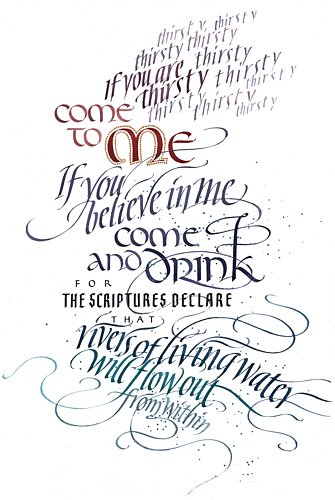 thirsty, thirsty
thirsty thirsty thirsty
If you are thirsty thirsty
thirsty thirsty
thirsty thirsty thirsty
COME
TO ME
If you
believe in me
COME
AND DRINK
FOR
THE SCRIPTURES DECLARE
THAT
rivers of living water
will flow out
from within